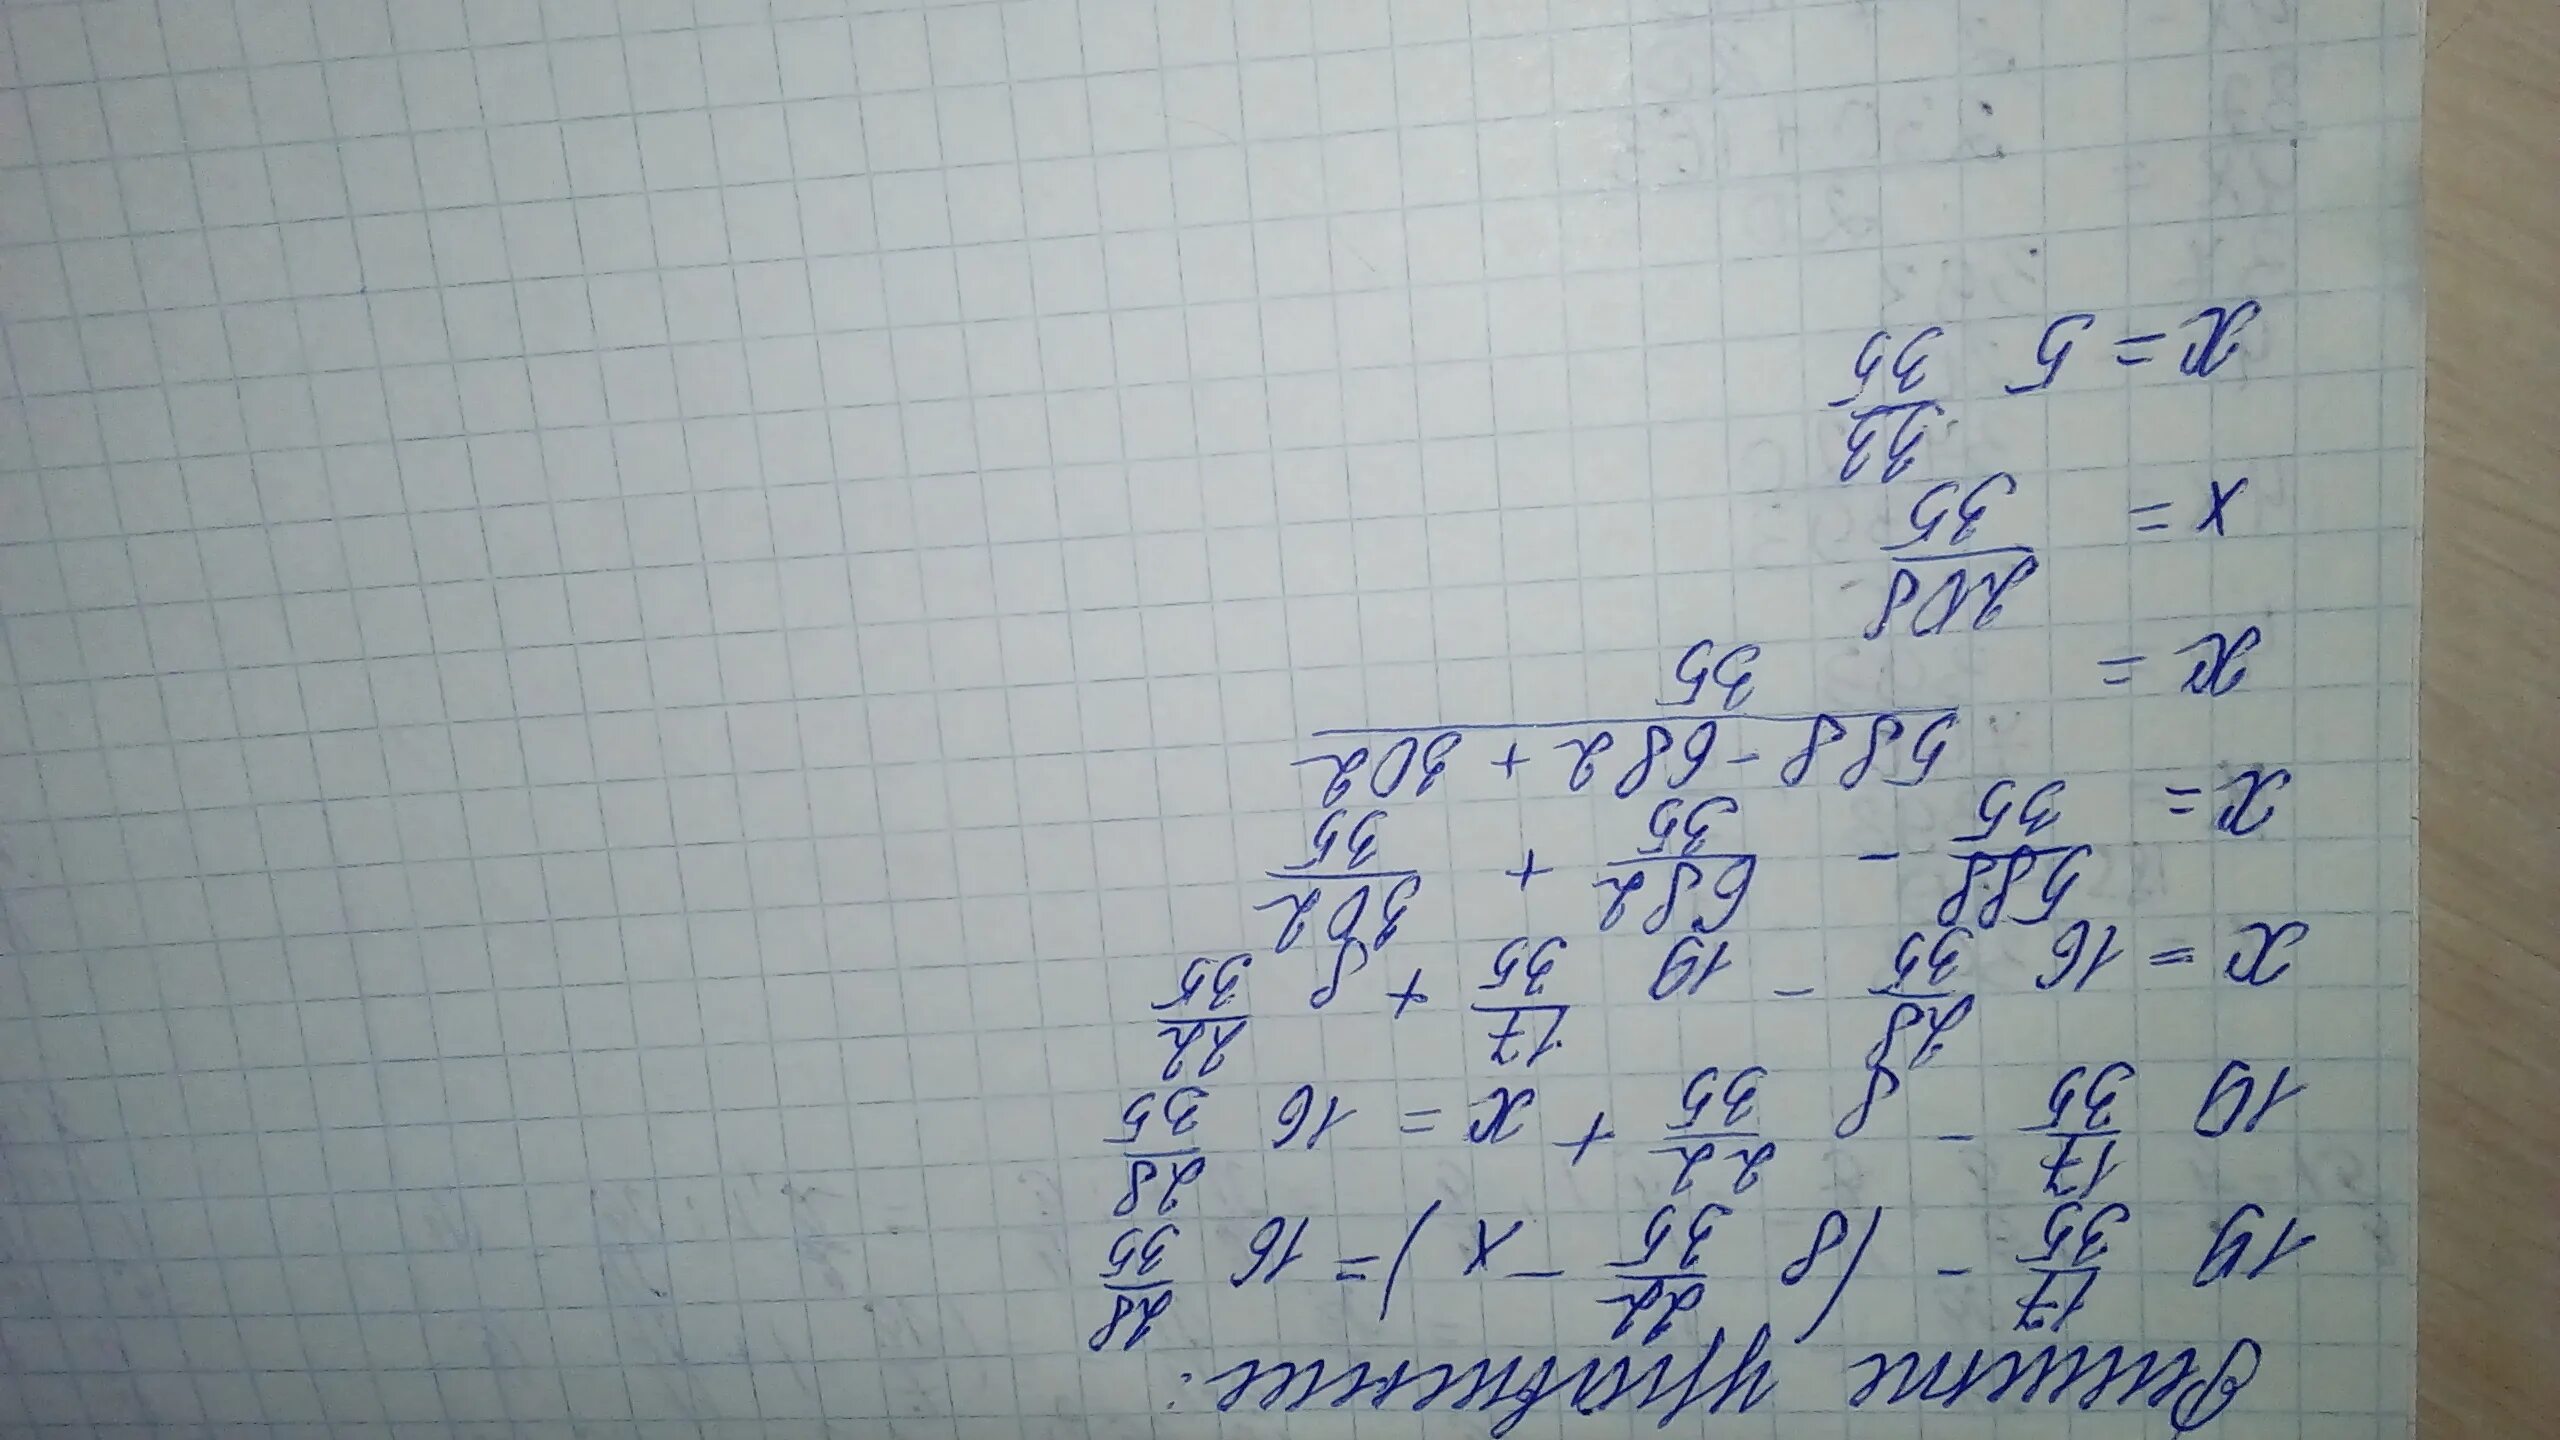 Решите уравнение:
19 17/35 - (8 22/35 - x) = 16 28/35
19 17/35 - 8 22/35 + x = 16 28/35
x = 16 28/35 - 19 17/35 + 8 22/35
x = 588/35 - 682/35 + 302/35
x = (588 - 682 + 302)/35
x = 208/35
x = 5 33/35